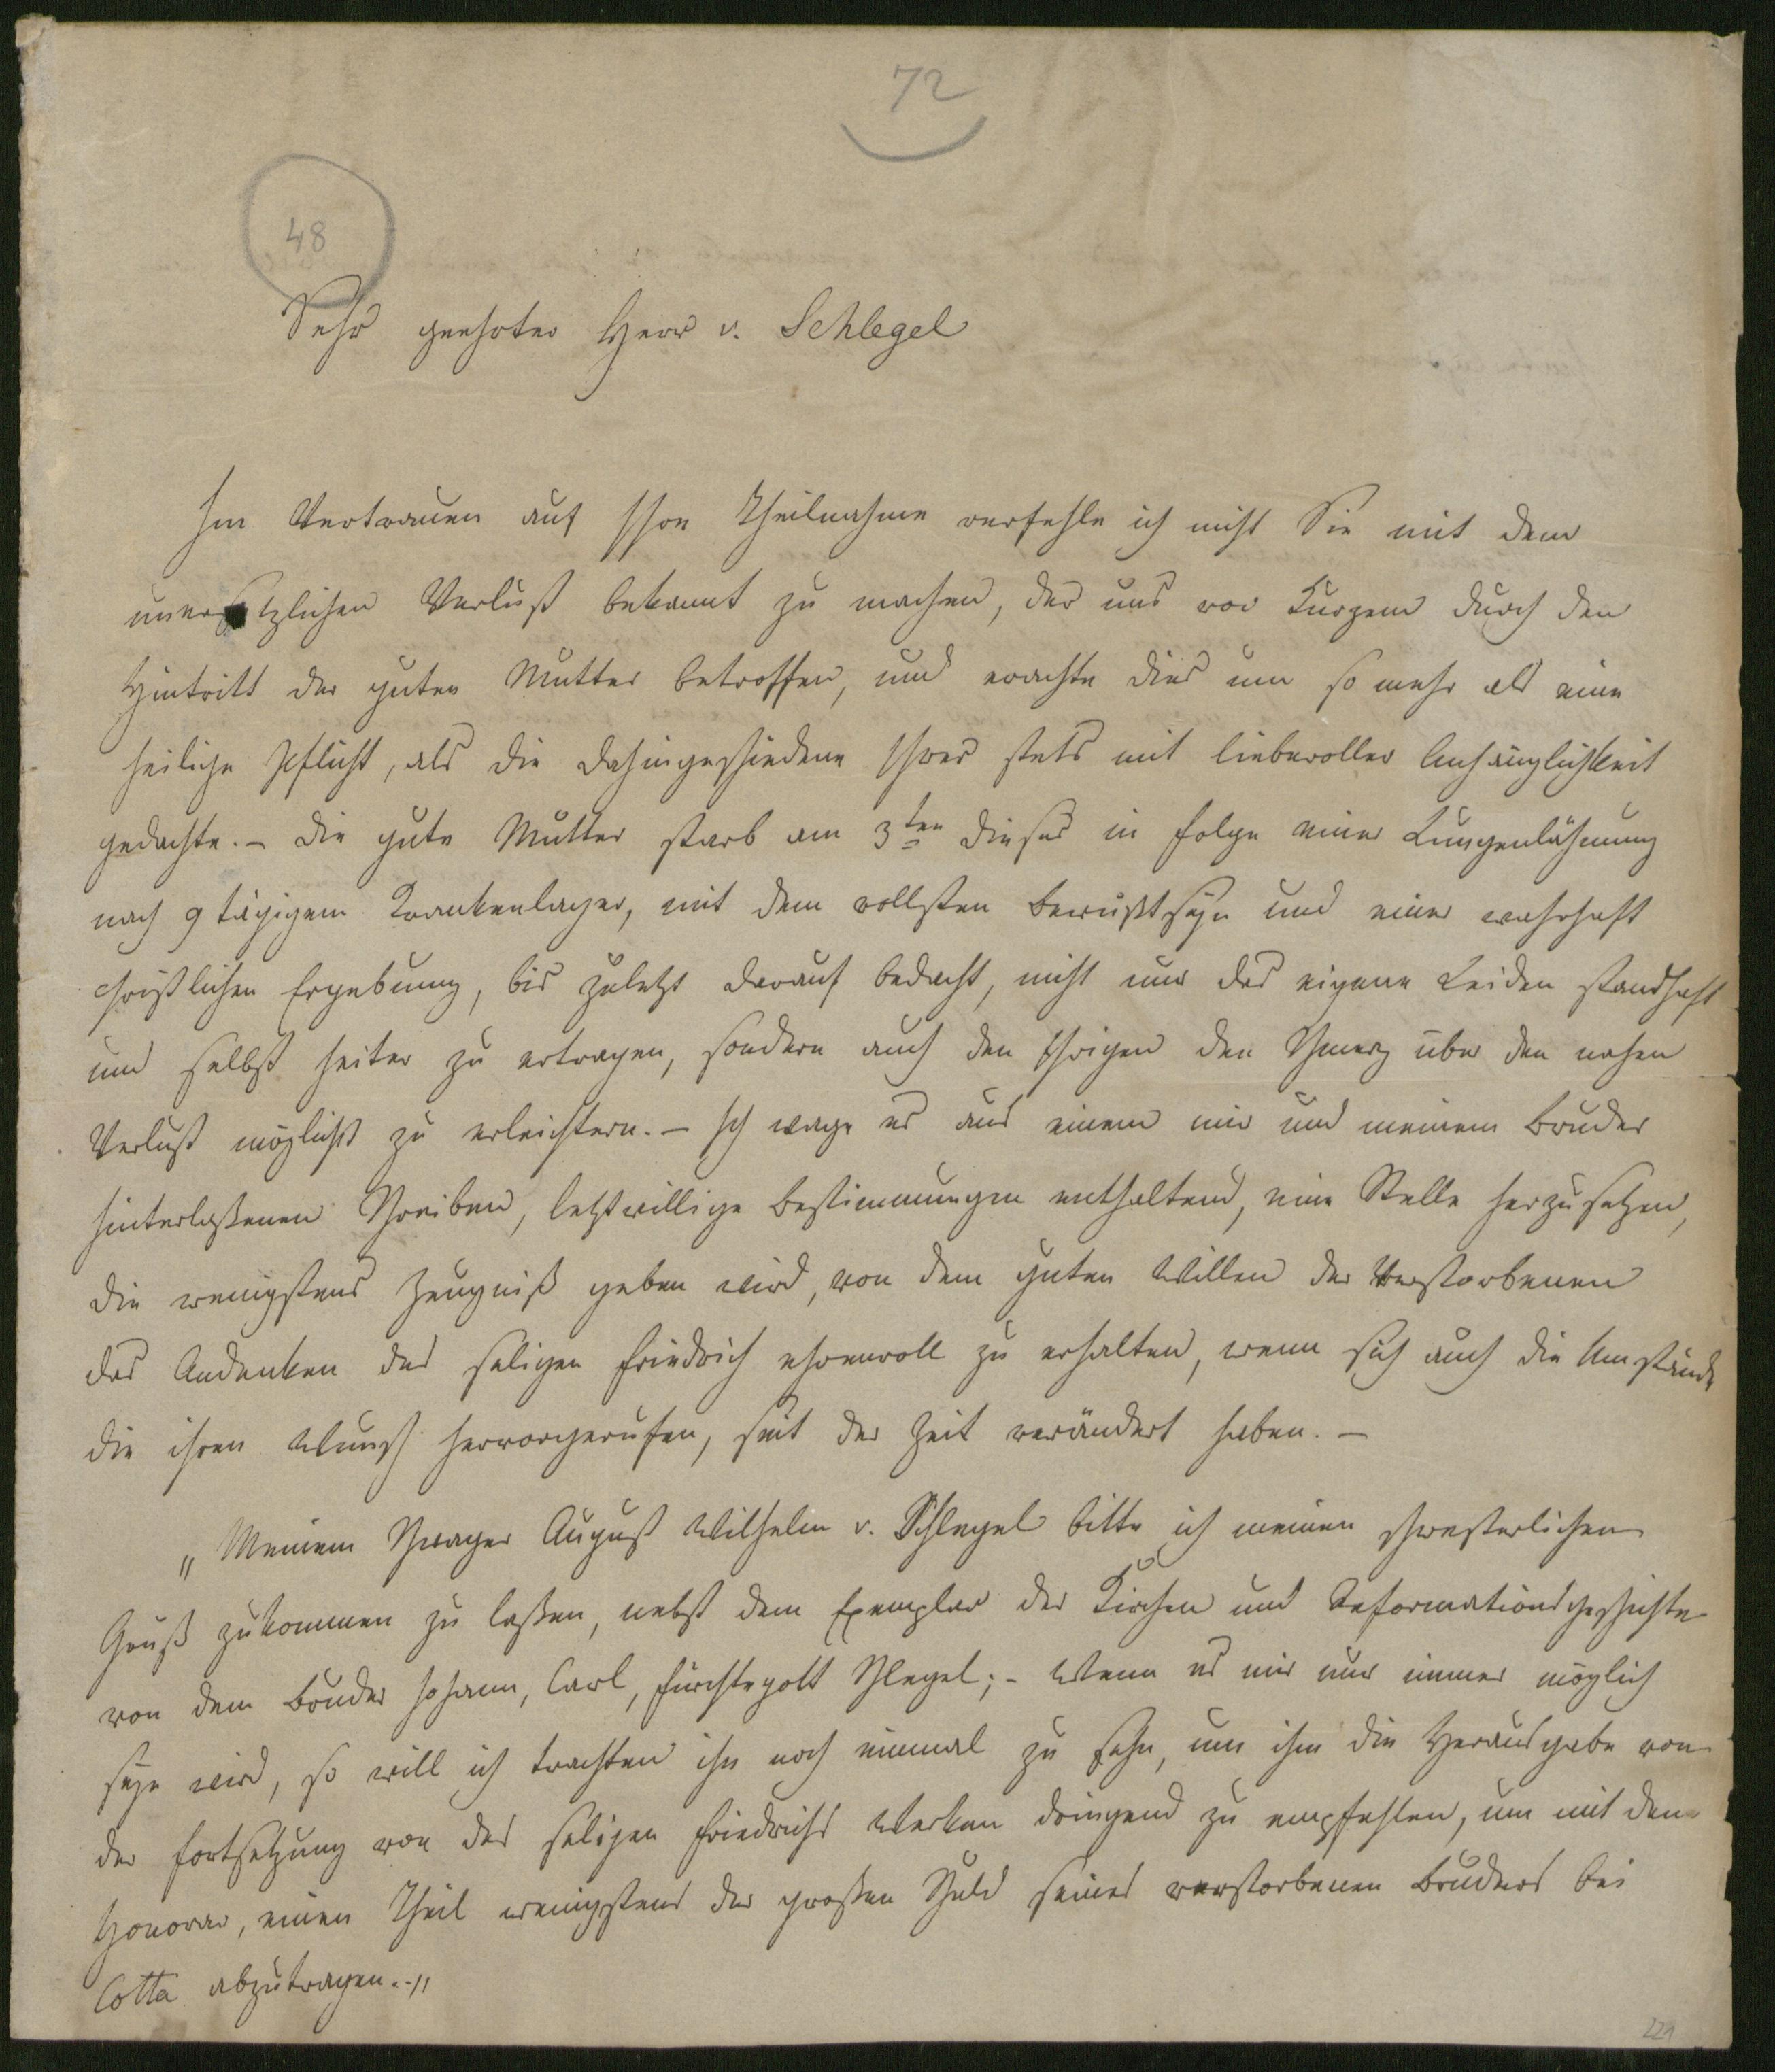 72
48
Sehr geehrter Herr v. Schlegel
Im Vertrauen auf Ihre Theilnahme verfehle ich nicht Sie mit dem
unersetzlichen Verlust bekannt zu machen, der uns vor Kurzem durch den
Hintritt der guten Mutter betroffen, und erachte dies um so mehr als eine
heilige Pflicht, als die Dahingeschiedene Ihrer stets mit liebevoller Anhänglichkeit
gedachte. – Die gute Mutter starb am 3ten dieses in Folge einer Lungenlähmung
nach 9 tägigem Krankenlager, mit dem vollsten Bewußtseyn und einer wahrhaft
christlichen Ergebung, bis zuletzt darauf bedacht, nicht nur das eigene Leiden standhaft
und selbst heiter zu ertragen, sondern auch den Ihrigen den Schmerz über den nahen
Verlust möglichst zu erleichtern. – Ich wage es aus einem mir und meinem Bruder
hinterlaßenen Schreiben, letztwillige Bestimmungen enthaltend, eine Stelle herzusetzen,
die wenigstens Zeugniß geben wird, von dem guten Willen der Verstorbenen
das Andenken des seligen Friedrich ehrenvoll zu erhalten, wenn sich auch die Umstände
die ihren Wunsch hervorgerufen, seit der Zeit verändert haben. –
„Meinem Schwager August Wilhelm v. Schlegel bitte ich meinen schwesterlichen
Gruß zukommen zu laßen, nebst dem Exemplar der Kirchen und Reformationsgeschichte
von dem Bruder Johann, Carl, Fürchtegott Schlegel; – Wenn es mir nur immer möglich
seyn wird, so will ich trachten ihn noch einmal zu sehn, um ihm die Herausgabe von
der Fortsetzung von des seligen Friedrichs Werken dringend zu empfehlen, um mit dem
Honorar, einen Theil wenigstens der großen Schuld seines verstorbenen Bruders bei
Cotta abzutragen. –„
221